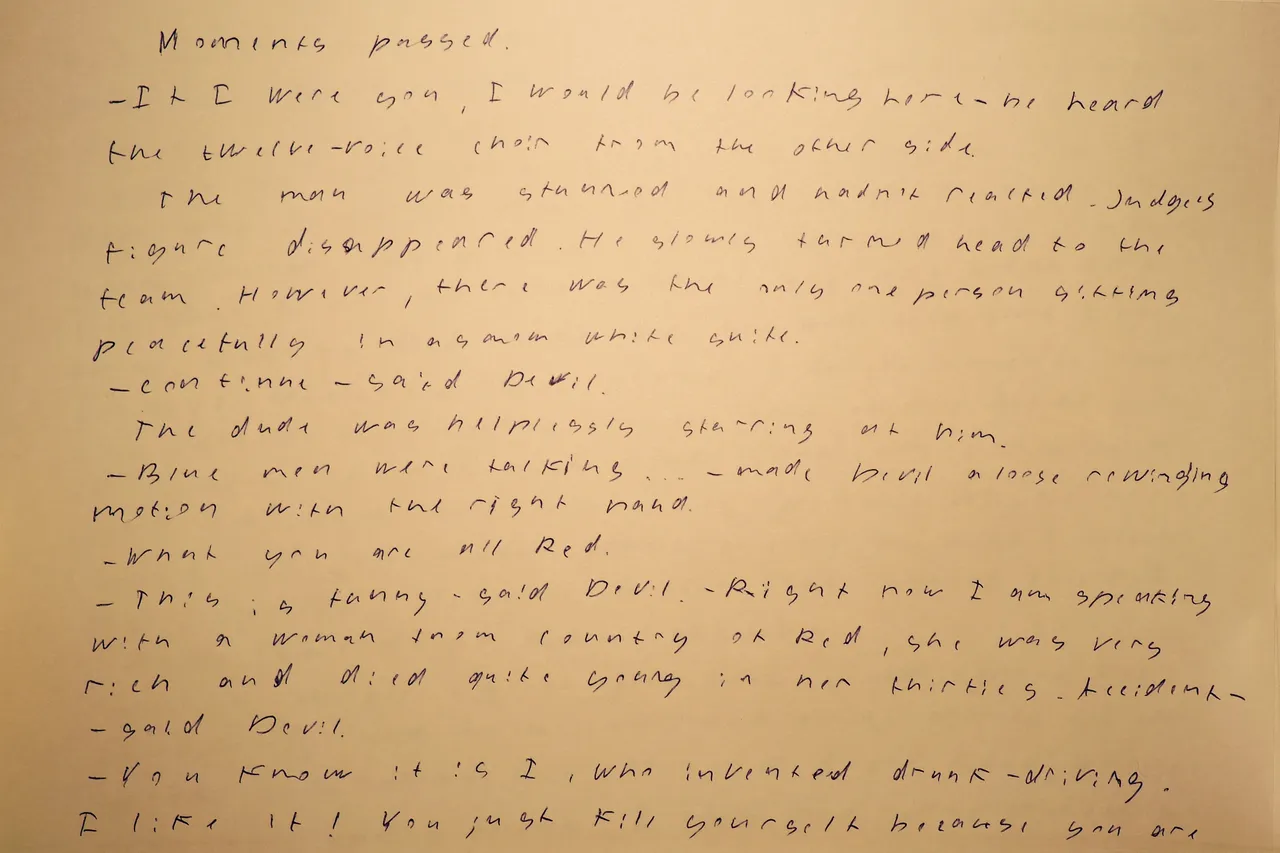 Moments passed.
-If I were you, I would be looking here - he heard
the twelve-voice choir from the other side.
The man was stunned and hadn't reacted. Judges
figure disappeared. He slowly turned head to the
team. However, there was the only one person sitting
peacefully in a snow white suite.
-Continue - said Devil.
The dude was helplessly starring at him.
-Blue men were talking... - made Devil a loose rewinding
motion with the right hand.
-What you are all Red.
-This is funny - said Devil. -Right now I am speaking
with a woman from country of Red, she was very
rich and died quite young in her thirties. Accident-
- said Devil.
-You know it is I, who invented drunk-driving.
I like it! You just kill yourself because you are